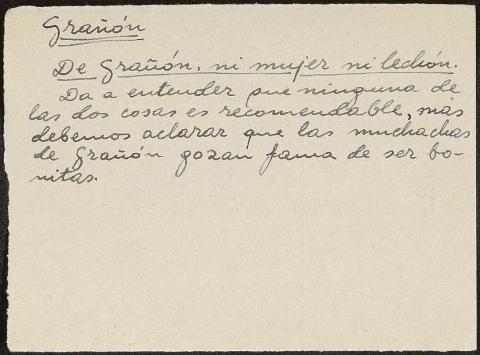 Grañón
De Grañón, ni mujer ni lechón.
Da a entender que ninguna de
las dos cosas es recomendable, más
debemos aclarar que las muchachas
de Grañón gozan fama de ser bo-
nitas.